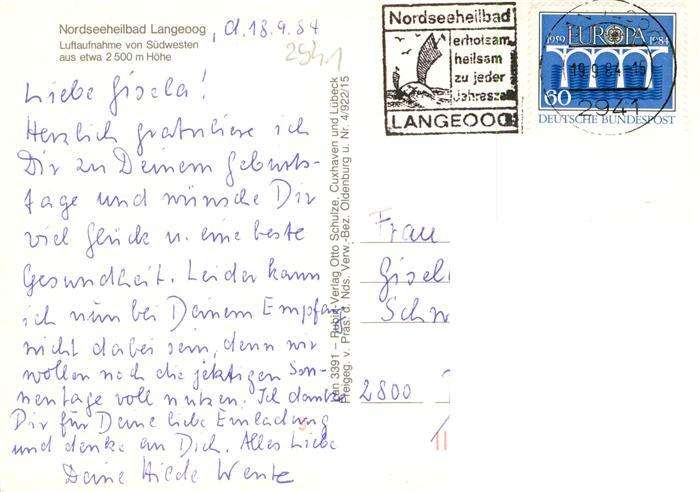 Nordseeheilbad Langeoog, d. 18.9.84
Luftaufnahme von Südwesten
aus etwa 2 500 m Höhe
2941
Liebe Gisela!
Herzlich gratuliere ich
Dir zu Deinem Geburts-
tage und wünsche Dir
viel Glück u. eine beste
Gesundheit. Leider kann
ich nun bei Deinem Empfang
nicht dabei sein, denn wir
wollen noch die jetztigen Son-
nentage voll nutzen. Ich danke
Dir für Deine liebe Einladung
und denke an Dich. Alles Liebe
Deine Hilde Wente
3391 – Rubin-Verlag Otto Schulze, Cuxhaven und Lübeck
Freigeg. v. Präs. d. Nds. Verw.-Bez. Oldenburg u. Nr. 4/922/15
Nordseeheilbad
erholsam
heilsam
zu jeder
Jahreszeit
LANGEOOG
1959 EUROPA 1984
60
DEUTSCHE BUNDESPOST
19.9.84-16
2941
Frau
Gisel
Schw
2800